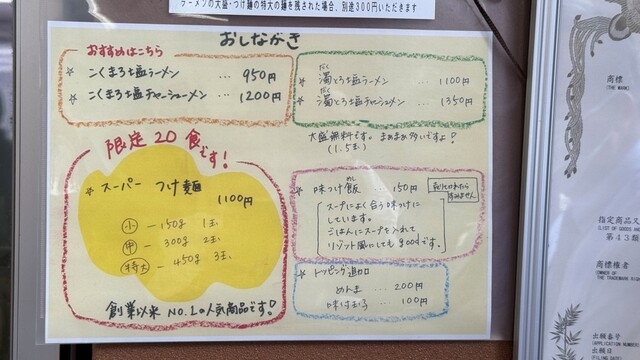 ラーメンの大盛・つけ麺の特大の麺を残された場合、別途300円いただきます
おしながき
おすすめはこちら
☆ こくまろ塩ラーメン … 950円
☆ こくまろ塩チャーシューメン … 1200円
☆ 濁とろ塩ラーメン … 1100円
だく
☆ 濁とろ塩チャーシュメン … 1350円
だく
大盛無料です。まあまあ多いですよ!
(1.5玉)
限定20食です!
☆ スーパーつけ麺
1100円
小 ー 150g 1玉
中 ー 300g 2玉
特大 ー 450g 3玉
創業以来NO.1の人気商品です!
☆ 味つけ飯 … 150円
めし
売り切れたら
すみません
スープによく合う味つけに
しています。
ごはんにスープを入れて
リゾット風にしてもgoodです。
☆ トッピング追加
めんま … 200円
味付玉子 … 100円
商標
(THE MARK)
指定商品又
(LIST OF GOODS AND
第43類
商標権者
(OWNER OF
THE TRADEMARK RIGH
出願番号
(APPLICATION NUMBER)
出願日
(FILING DATE)